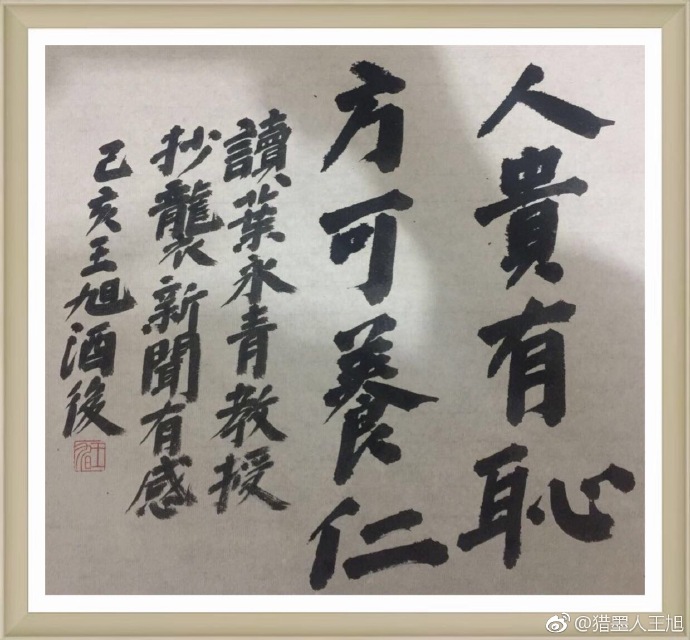 人貴有恥
方可養仁
讀葉永青教授
抄襲新聞有感
己亥王旭酒後
@猎墨人王旭